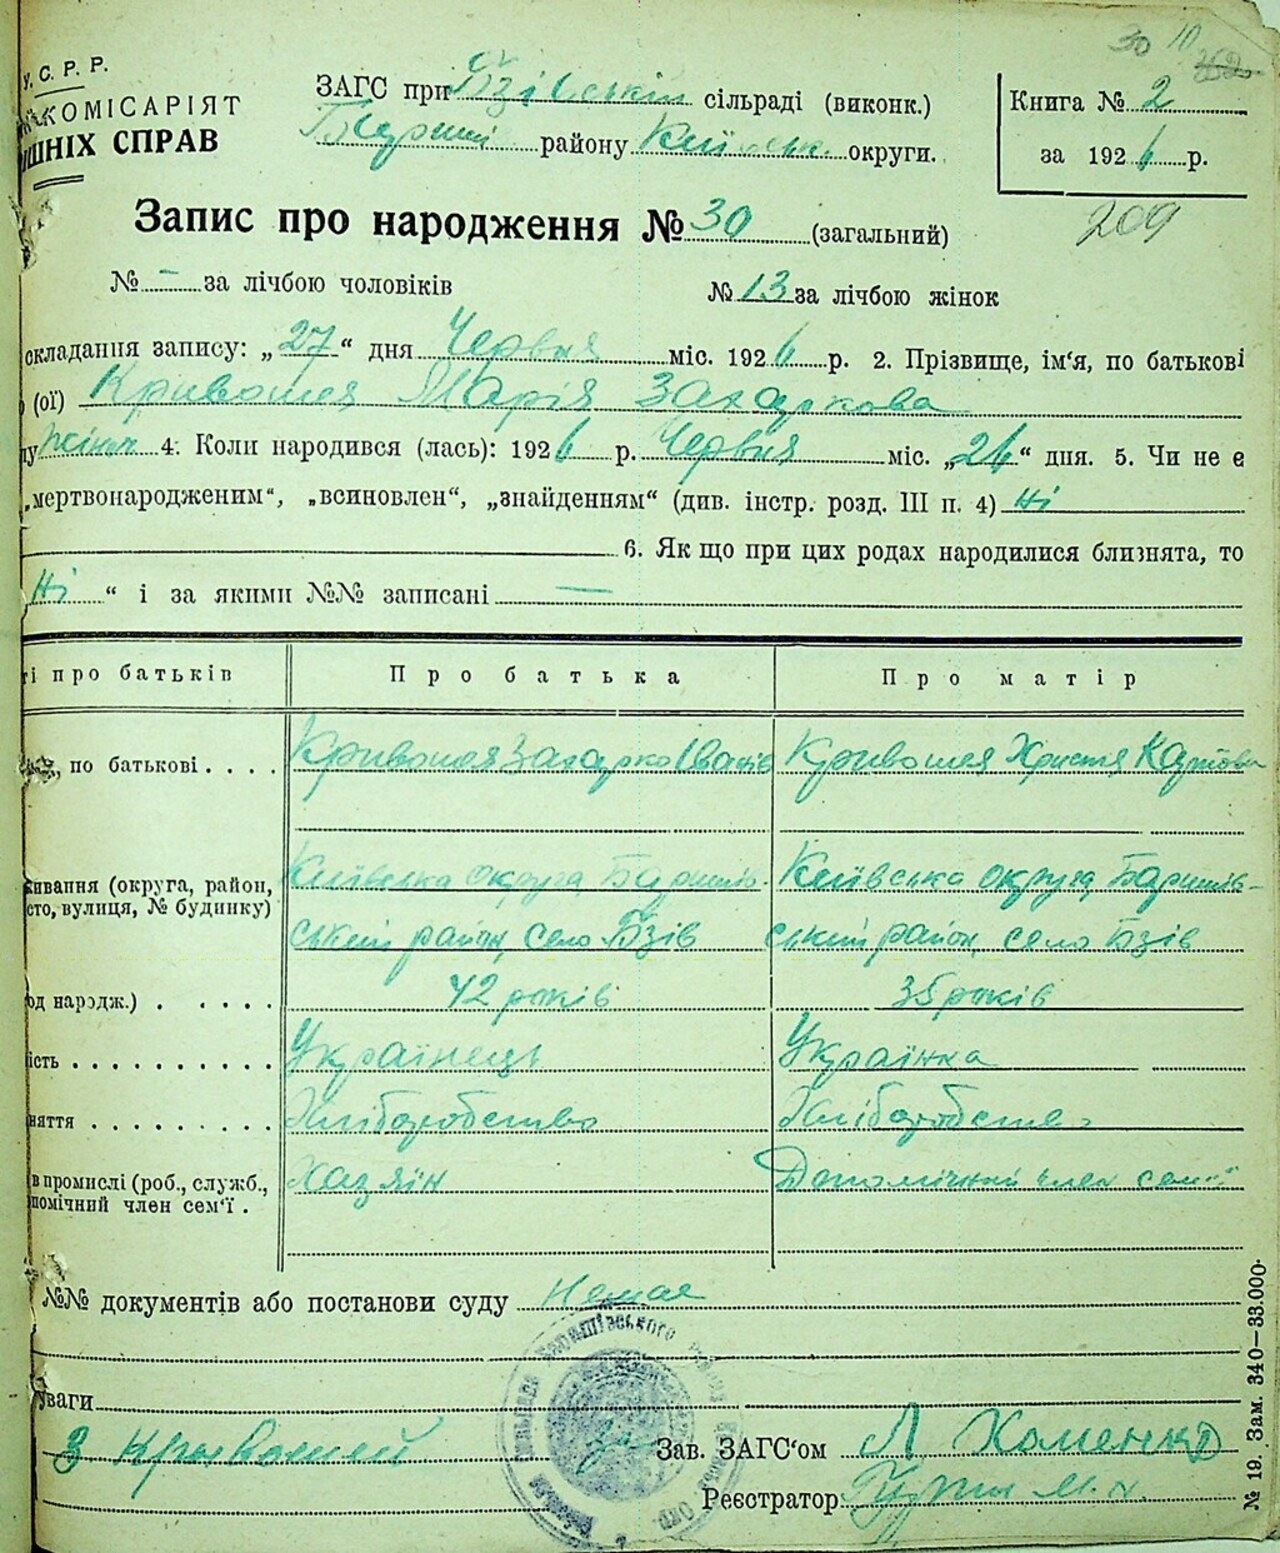 30 10
У. С. Р. Р.
КОМІСАРІЯТ
ШНІХ СПРАВ
ЗАГС при Бзівській сільраді (виконк.)
Бариші району Київськ. округи.
Книга № 2
за 1926 р.
Запис про народження № 30 (загальний)
209
№ – за лічбою чоловіків
№ 13 за лічбою жінок
складання запису: „27“ дня Червня міс. 1926 р. 2. Прізвище, ім'я, по батькові
(ої) Кривошея Марія Захаркова
Жіноч 4. Коли народився (лась): 1926 р. Червня міс. „26“ дня. 5. Чи не є
„мертвонародженим“, „всиновлен“, „знайденням“ (див. інстр. розд. III п. 4) Ні
6. Як що при цих родах народилися близнята, то
Ні “ і за якими №№ записані —
і про батьків
Про батька
Про матір
по батькові . . . .
Кривошея Захарко Іванів
Кривошея Христя
живання (округа, район,
сто, вулиця, № будинку)
Київська округа Баришів-
ський район, село Бзів
Київська округа, Баришів-
ський район, село Бзів
од народж.) . . . . .
42 років
35 років
ість . . . . . . . . . .
Українець
Українка
няття . . . . . . . . .
Хліборобство
Хліборобство
в промислі (роб., служб.,
помічний член сем'ї .
Хазяїн
Допомічний член сем'ї
№№ документів або постанови суду Немає
Уваги
З Крывошей
за Зав. ЗАГС'ом Л Хоменко
Реєстратор
№ 19. Зам. 340—33.000.